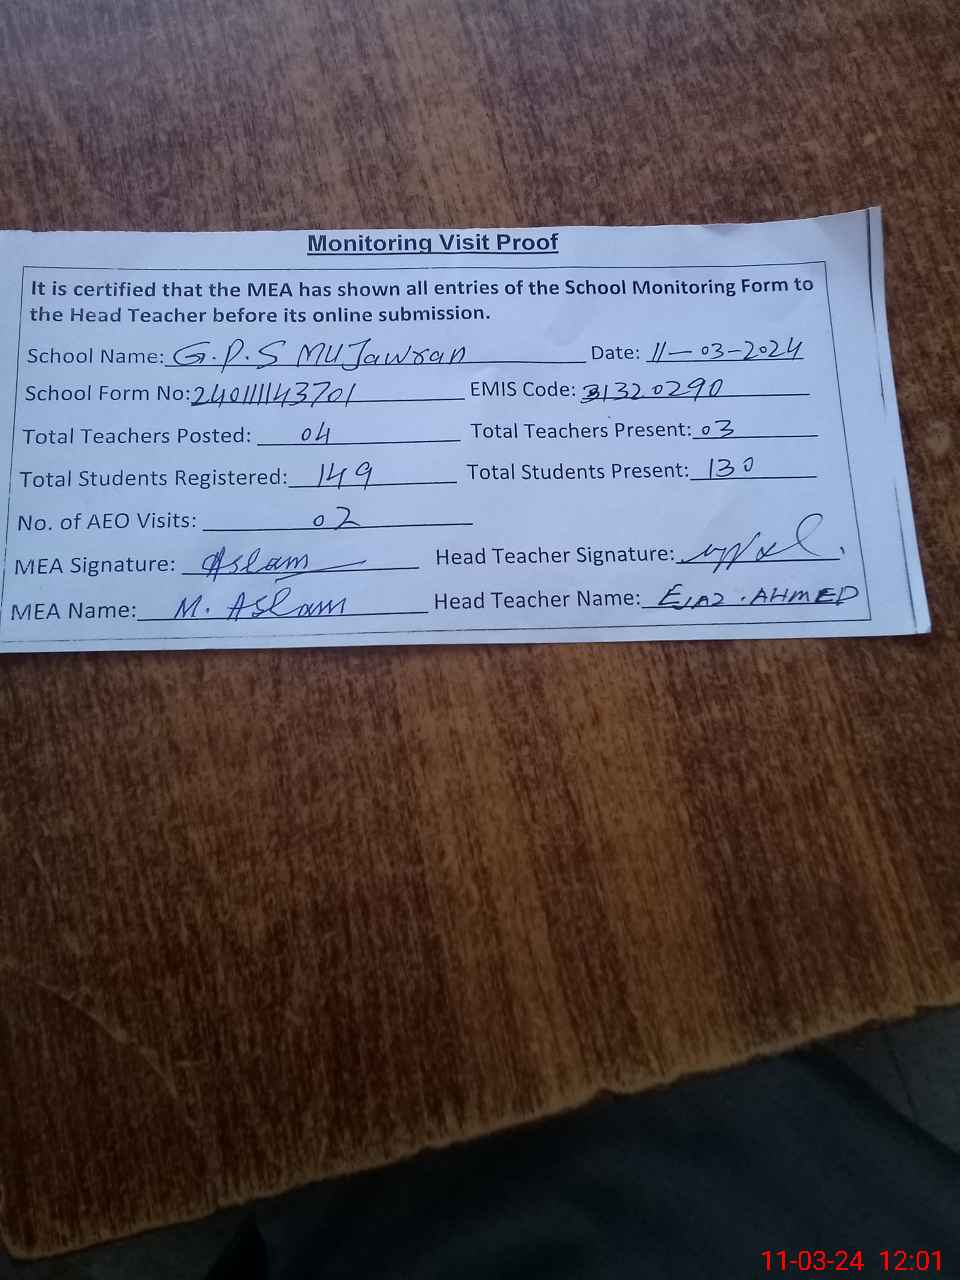 Monitoring Visit Proof
It is certified that the MEA has shown all entries of the School Monitoring Form to
the Head Teacher before its online submission.
School Name: G.P.S MUJawran Date: 11-03-2024
School Form No: 240111143701 EMIS Code: 31320290
Total Teachers Posted: 04 Total Teachers Present: 03
Total Students Registered: 149 Total Students Present: 130
No. of AEO Visits: 02
MEA Signature: Aslam Head Teacher Signature:
MEA Name: M. Aslam Head Teacher Name: EJAZ.AHMED
11-03-24 12:01